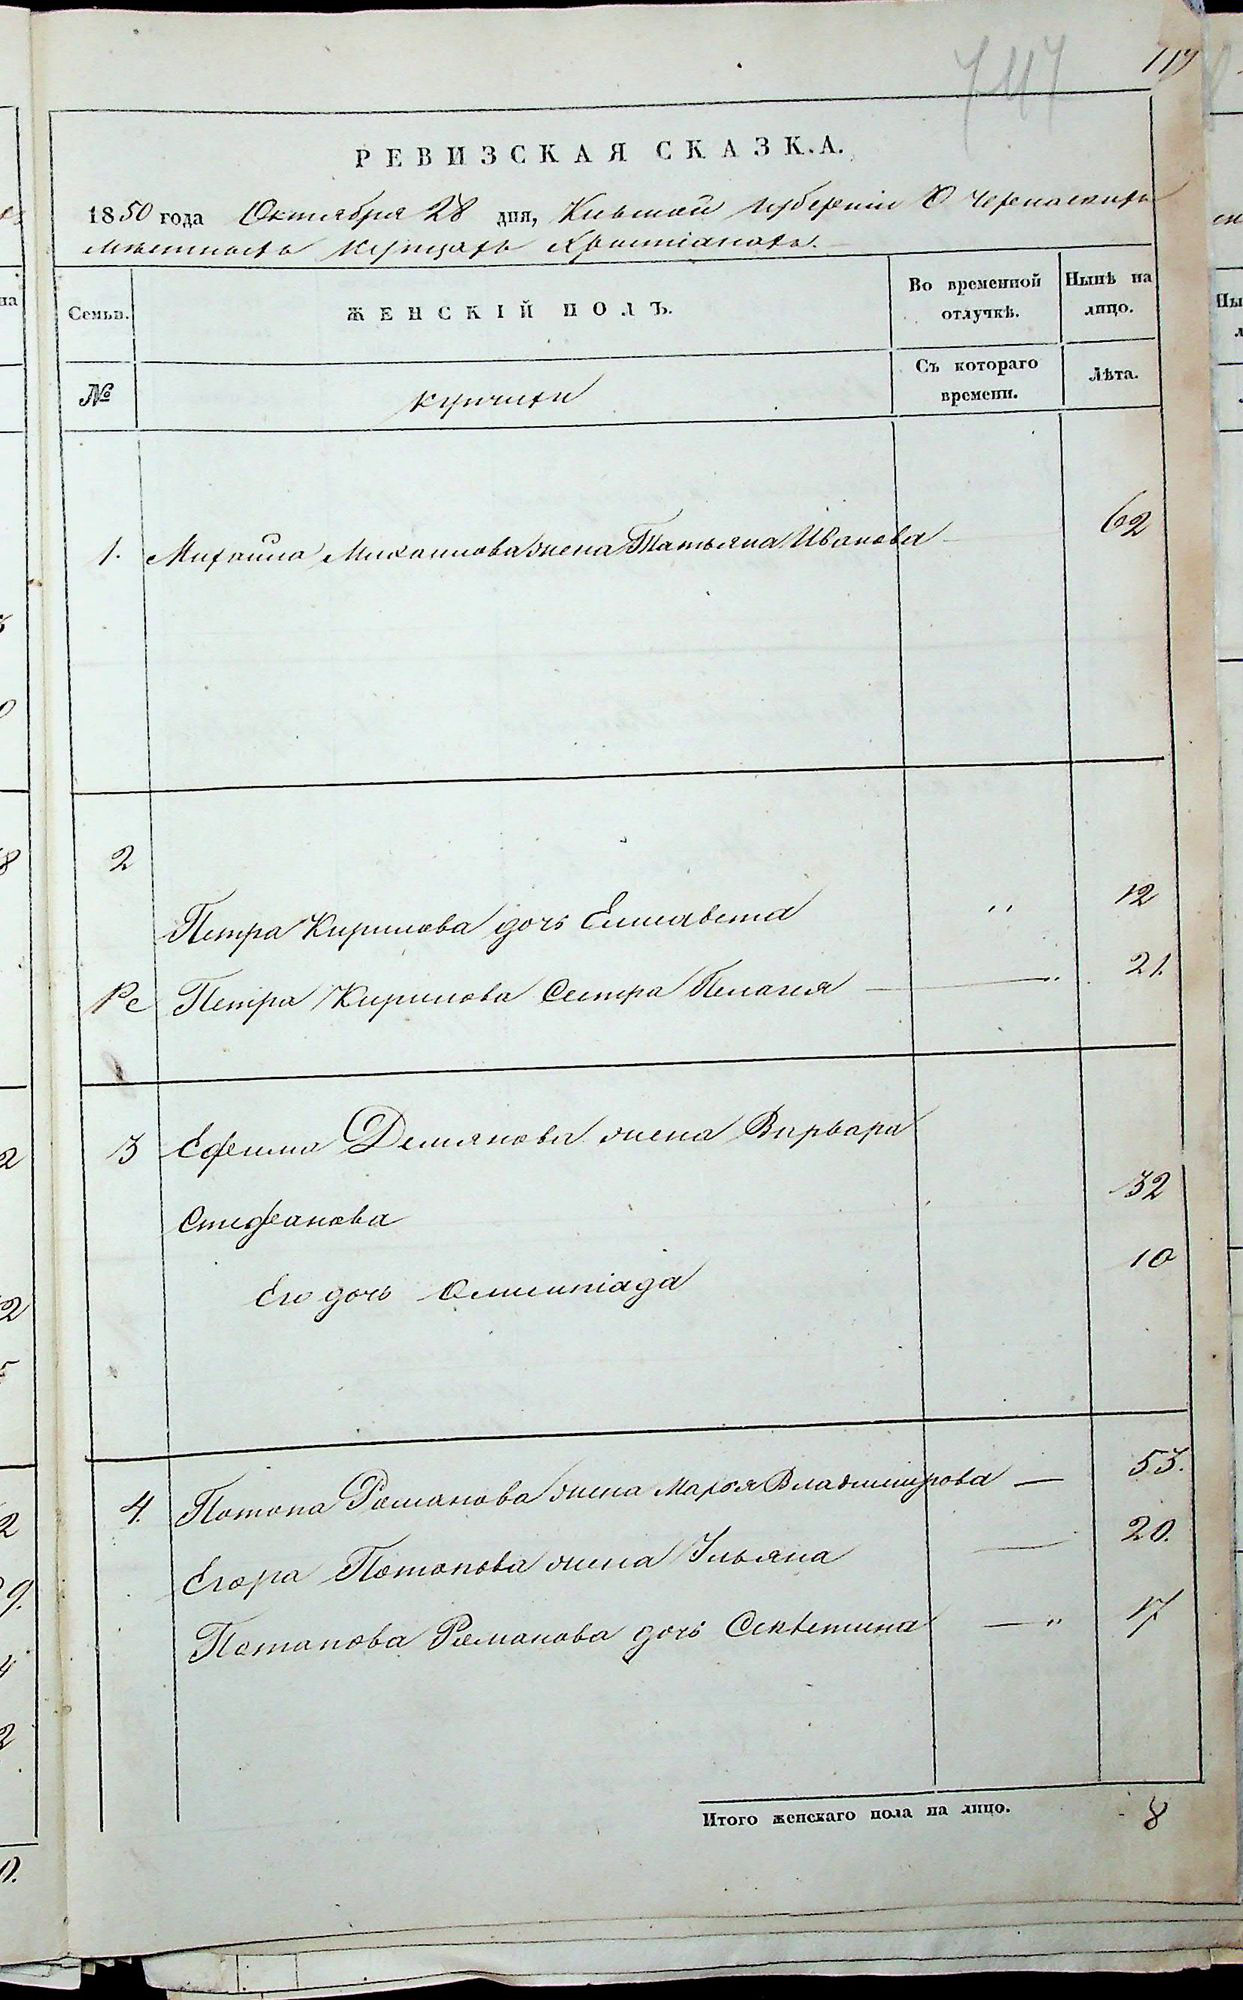 117
РЕВИЗСКАЯ СКАЗКА.
1850 года Октября 28 дня, Кіевской губерніи О Черкаскихъ
мѣстныхъ купцахъ Христіанахъ.
Семьи.
ЖЕНСКІЙ ПОЛЪ.
Во временной отлучкѣ.
Нынѣ на лицо.
№
купчихи
Съ котораго времени.
Лѣта.
1. Михайла Михаилова жена Татьяна Иванова 62
2
Петра Кирилова дочь Елисавета " 12
Ре Петра Кирилова Сестра Пелагея — " 21.
3 Ефима Демянова жена Варвара
Стефанова 32
Его дочь Олимпіада 10
4. Потапа Романова жена Марья Владимирова — 53.
Егора Потапова жена Ульяна — 20.
Потапова Романова дочь — " 17
Итого женскаго пола на лицо. 8